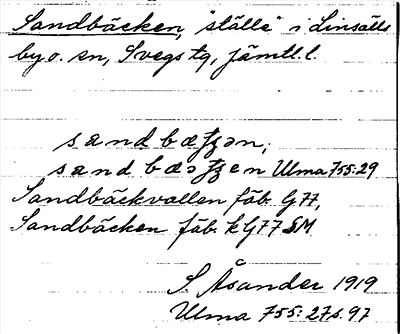 Sandbäcken, "ställe" i Linsälls
by o. sn, Svegs tg, Jämtl. l.
sandbæꞔʒən;
sandbæəꞔʒen Ulma 755:29
Sandbäckvallen fäb. G77,
Sandbäcken fäb. k G77 SM
S. Åsander 1919
Ulma 755: 27 s. 97